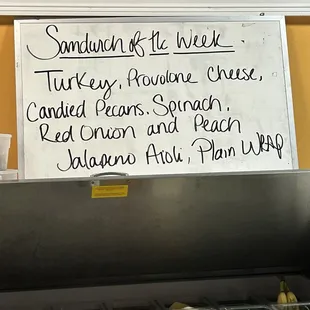 Sandwich of the Week
Turkey, Provolone Cheese,
Candied Pecans. Spinach,
Red Onion and Peach
Jalapeno Aioli, Plain WRAP